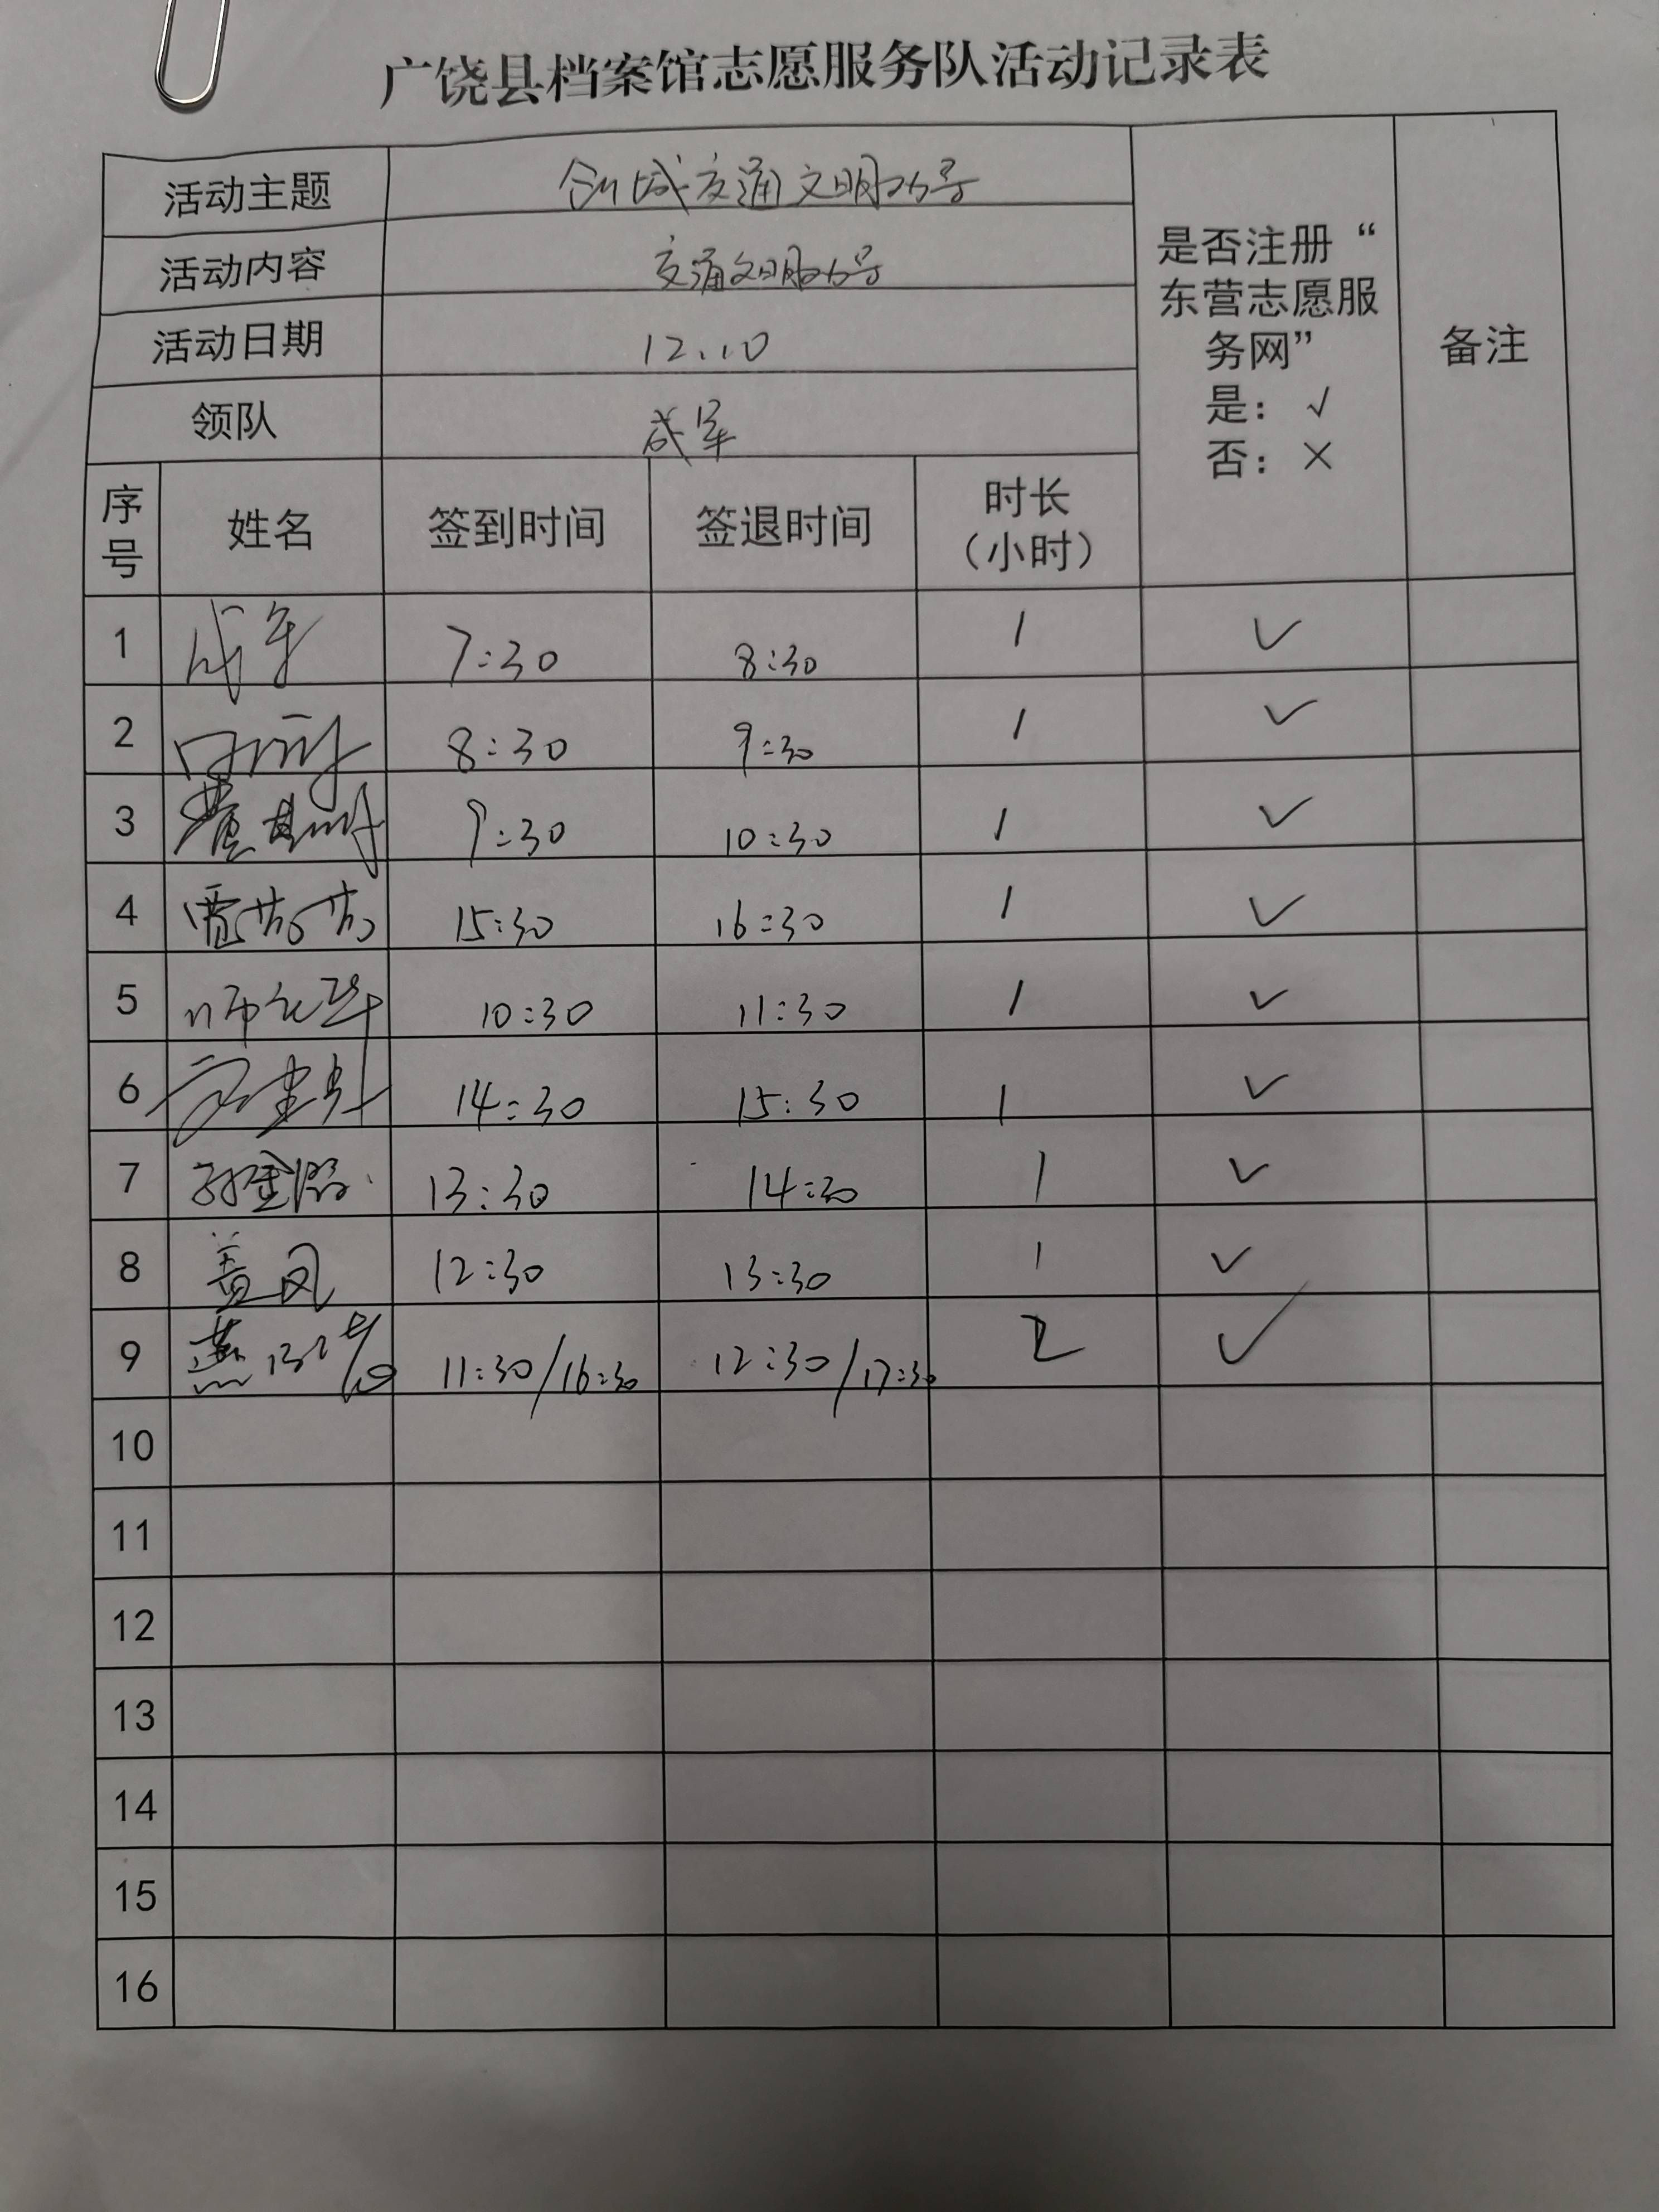 广饶县档案馆志愿服务队活动记录表
活动主题 创城交通文明劝导
活动内容 交通文明劝导
活动日期 12.10
领队 成军
是否注册“
东营志愿服
务网”
是：√
否：×
备注
序号 姓名 签到时间 签退时间 时长（小时）
1 成军 7:30 8:30 1 √
2 8:30 9:30 1 √
3 9:30 10:30 1 √
4 15:30 16:30 1 √
5 10:30 11:30 1 √
6 14:30 15:30 1 √
7 13:30 14:30 1 √
8 盖凤 12:30 13:30 1 √
9 11:30/16:30 12:30/17:30 2 √
10
11
12
13
14
15
16